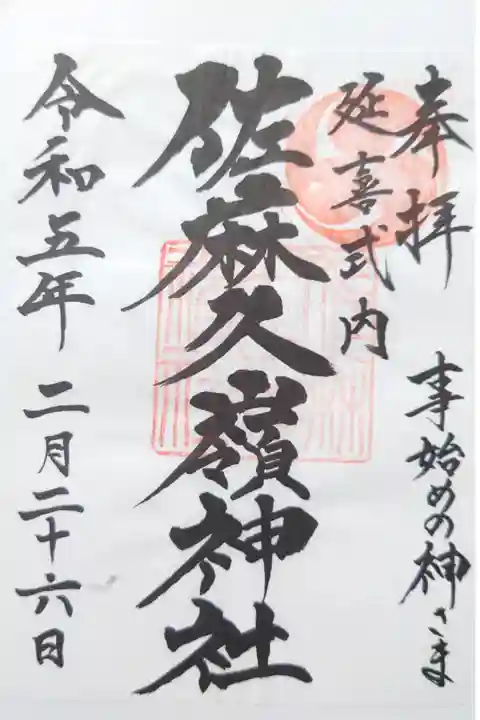 奉拝
事始めの神さま
延喜式内
佐麻久嶺神社
令和五年 二月二十六日